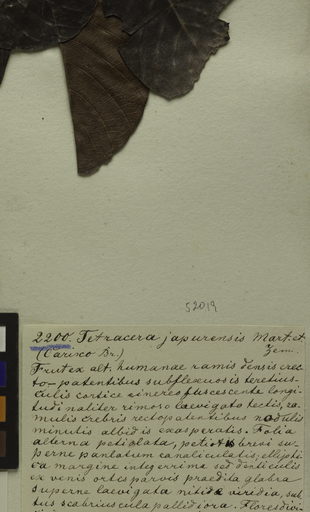 52019
2200. Tetracera japurensis Mart. et
Zem.
(Carixo Br.)
Frutex alt. humanae ramis densis erec
to-patentibus subflexuosis teretius-
culis cortice cinereo fuscescente longi
tudinaliter rimoso laevigato tectis, ra
mulis crebris rectopatentibus nodulis
minutis albidis exasperatis. Folia
alterna petiolata, petiolis brevi su-
perne canaliculatis; ellipti
ca margine integerrima sed denticulis
ex venis ortis parvis praedita glabra
superne laevigata nitida viridia, sub
tus scabriuscula pallidiora. Flores divi